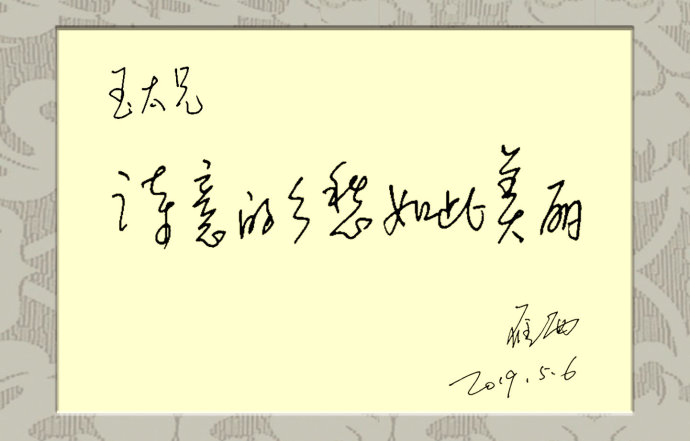 玉太兄
诗意的乡愁如此美丽
雁西
2019.5.6